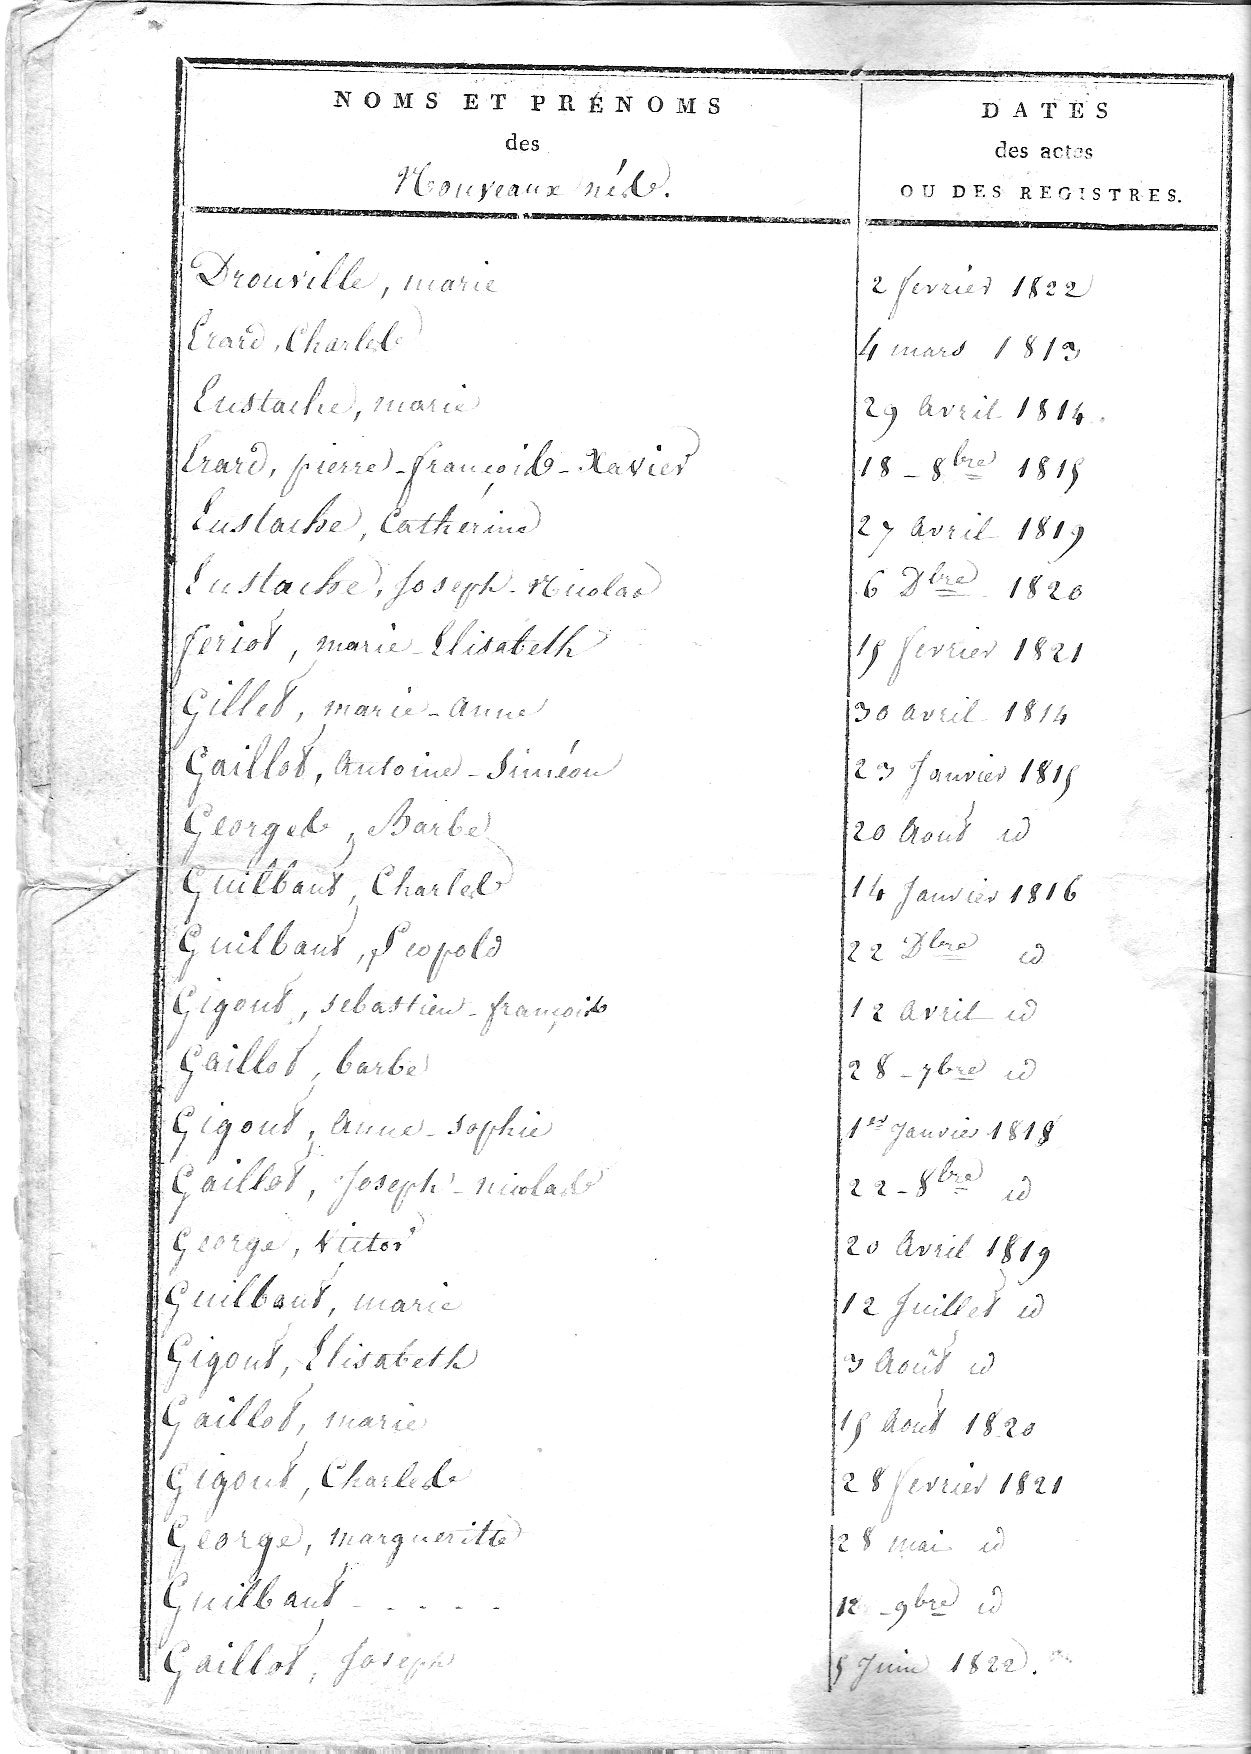 NOMS ET PRÉNOMS
des
Nouveaux nés.
DATES
des actes
OU DES REGISTRES.
Drouville, marie 2 fevrier 1822
Erard, Charles 4 mars 1813
Eustache, marie 29 avril 1814.
Erard, pierre-françois-Xavier 18-8bre 1815
Eustache, Catherine 27 avril 1819
Eustache, Joseph-Nicolas 6 Dbre 1820
feriot, marie-Elisabeth 15 fevrier 1821
Gillet, marie-anne 30 avril 1814
Gaillot, antoine-Siméon 23 Janvier 1815
Georges, Barbe 20 Aout id
Guilbaut, Charles 14 Janvier 1816
Guilbaut, Léopold 22 Dbre id
Gigout, sebastien-françois 12 avril id
Gaillot, barbe 28-7bre id
Gigout, anne-sophie 1er Janvier 1818
Gaillot, Joseph-nicolas 22-8bre id
George, Victor 20 avril 1819
Guilbaut, marie 12 Juillet id
Gigout, Elisabeth 3 Août id
Gaillot, marie 15 Aout 1820
Gigout, Charles 28 fevrier 1821
George, margueritte 28 mai id
Guilbaut - - - - - 12-9bre id
Gaillot, Joseph 5 Juin 1822.